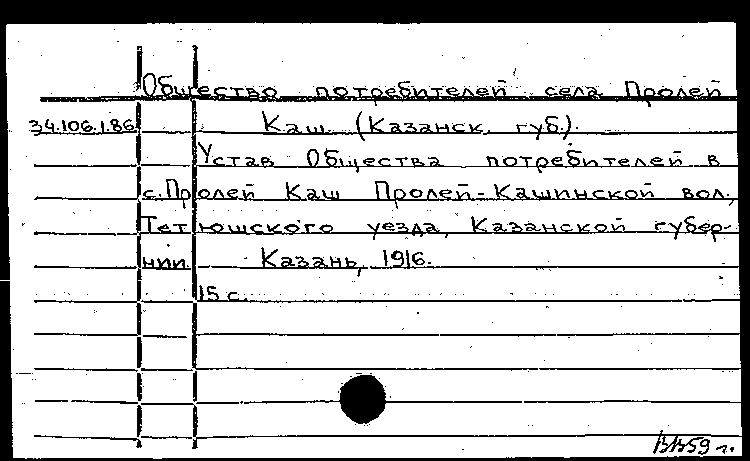 Общество потребителей села Пролей
34.106.1.86 Каш (Казанск. губ.).
Устав Общества потребителей в
с.Пролей Каш Пролей-Кашинской вол.,
Тетюшского уезда, Казанской губер-
нии. Казань, 1916.
15 с.